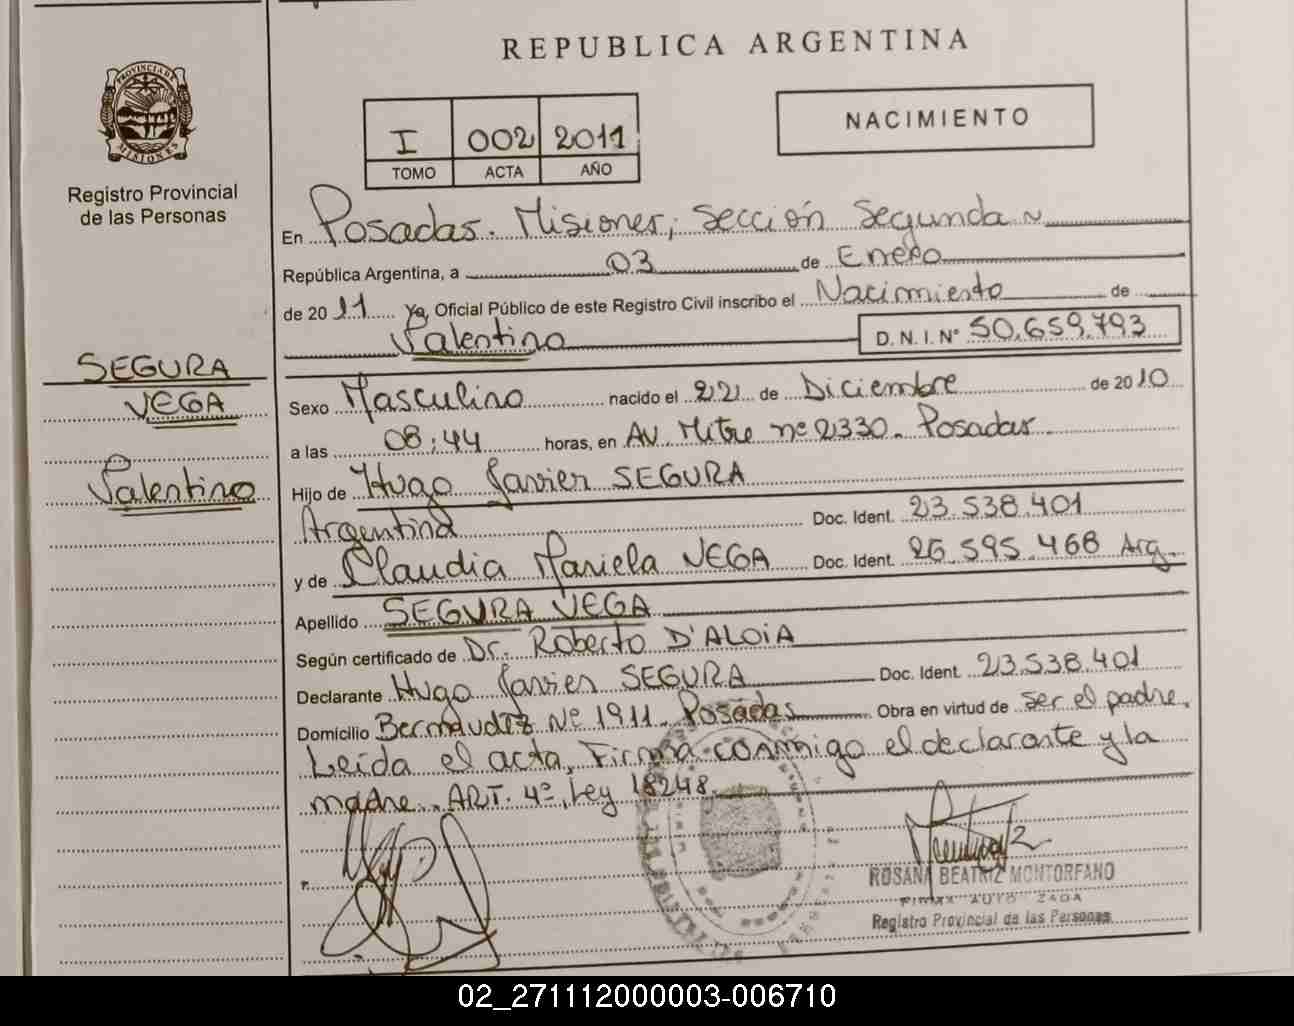 REPUBLICA ARGENTINA
PROVINCIA DE
MISIONES
Registro Provincial
de las Personas
I 002 2011
TOMO ACTA AÑO
NACIMIENTO
En Posadas. Misiones; Sección Segunda
República Argentina, a 03 de Enero
de 2011 Yo, Oficial Público de este Registro Civil inscribo el Nacimiento de
Valentino D. N. I. Nº 50.659.793
SEGURA
VEGA
Valentino
Sexo Masculino nacido el 22 de Diciembre de 2010
a las 08:44 horas, en Av. Mitre nº 2330. Posadas.
Hijo de Hugo Javier SEGURA
Argentina Doc. Ident. 23.538.401
y de Claudia Mariela VEGA Doc. Ident. 26.595.468 Arg.
Apellido SEGURA VEGA
Según certificado de Dr. Roberto D'ALOIA
Declarante Hugo Javier SEGURA Doc. Ident. 23.538.401
Domicilio Bermudez Nº 1911. Posadas Obra en virtud de ser el padre.
Leída el acta, Firma conmigo el declarante y la
madre. ART. 4º, Ley 18248.
ROSANA BEATRIZ MONTORFANO
FIRMA AUTORIZADA
Registro Provincial de las Personas
02_271112000003-006710